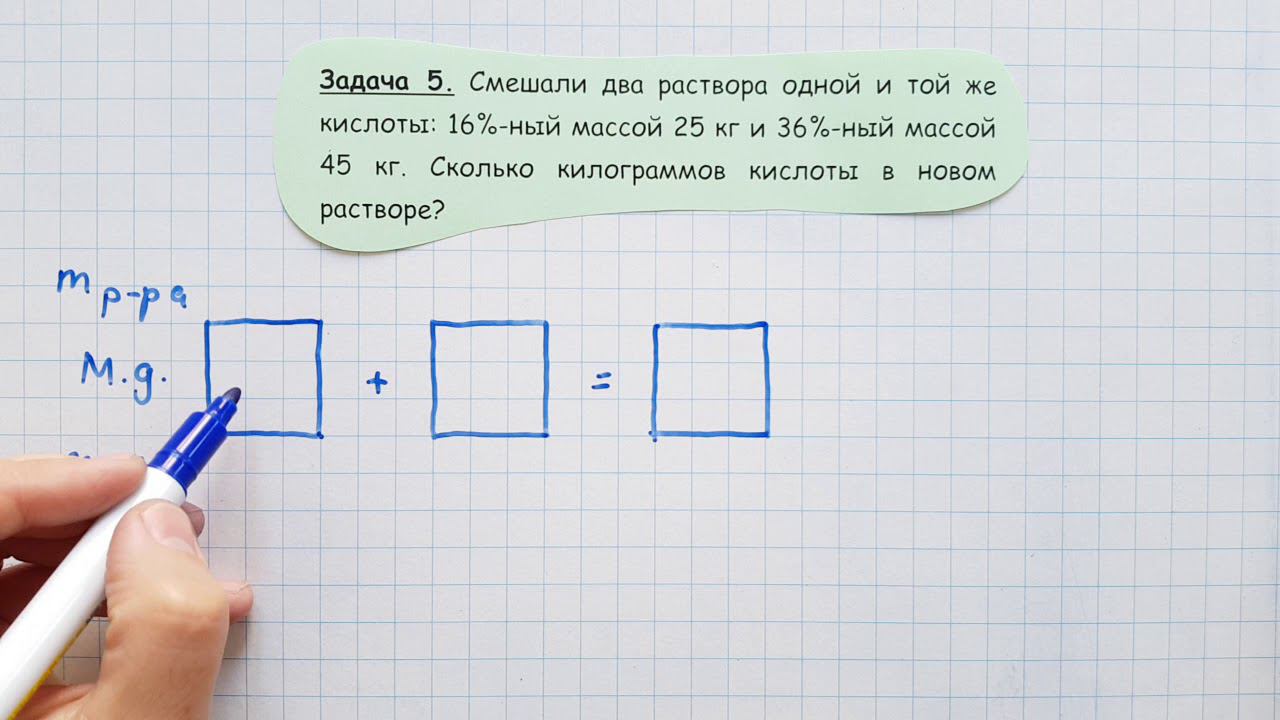 Задача 5. Смешали два раствора одной и той же
кислоты: 16%-ный массой 25 кг и 36%-ный массой
45 кг. Сколько килограммов кислоты в новом
растворе?
m р-ра
М.д.
+ =